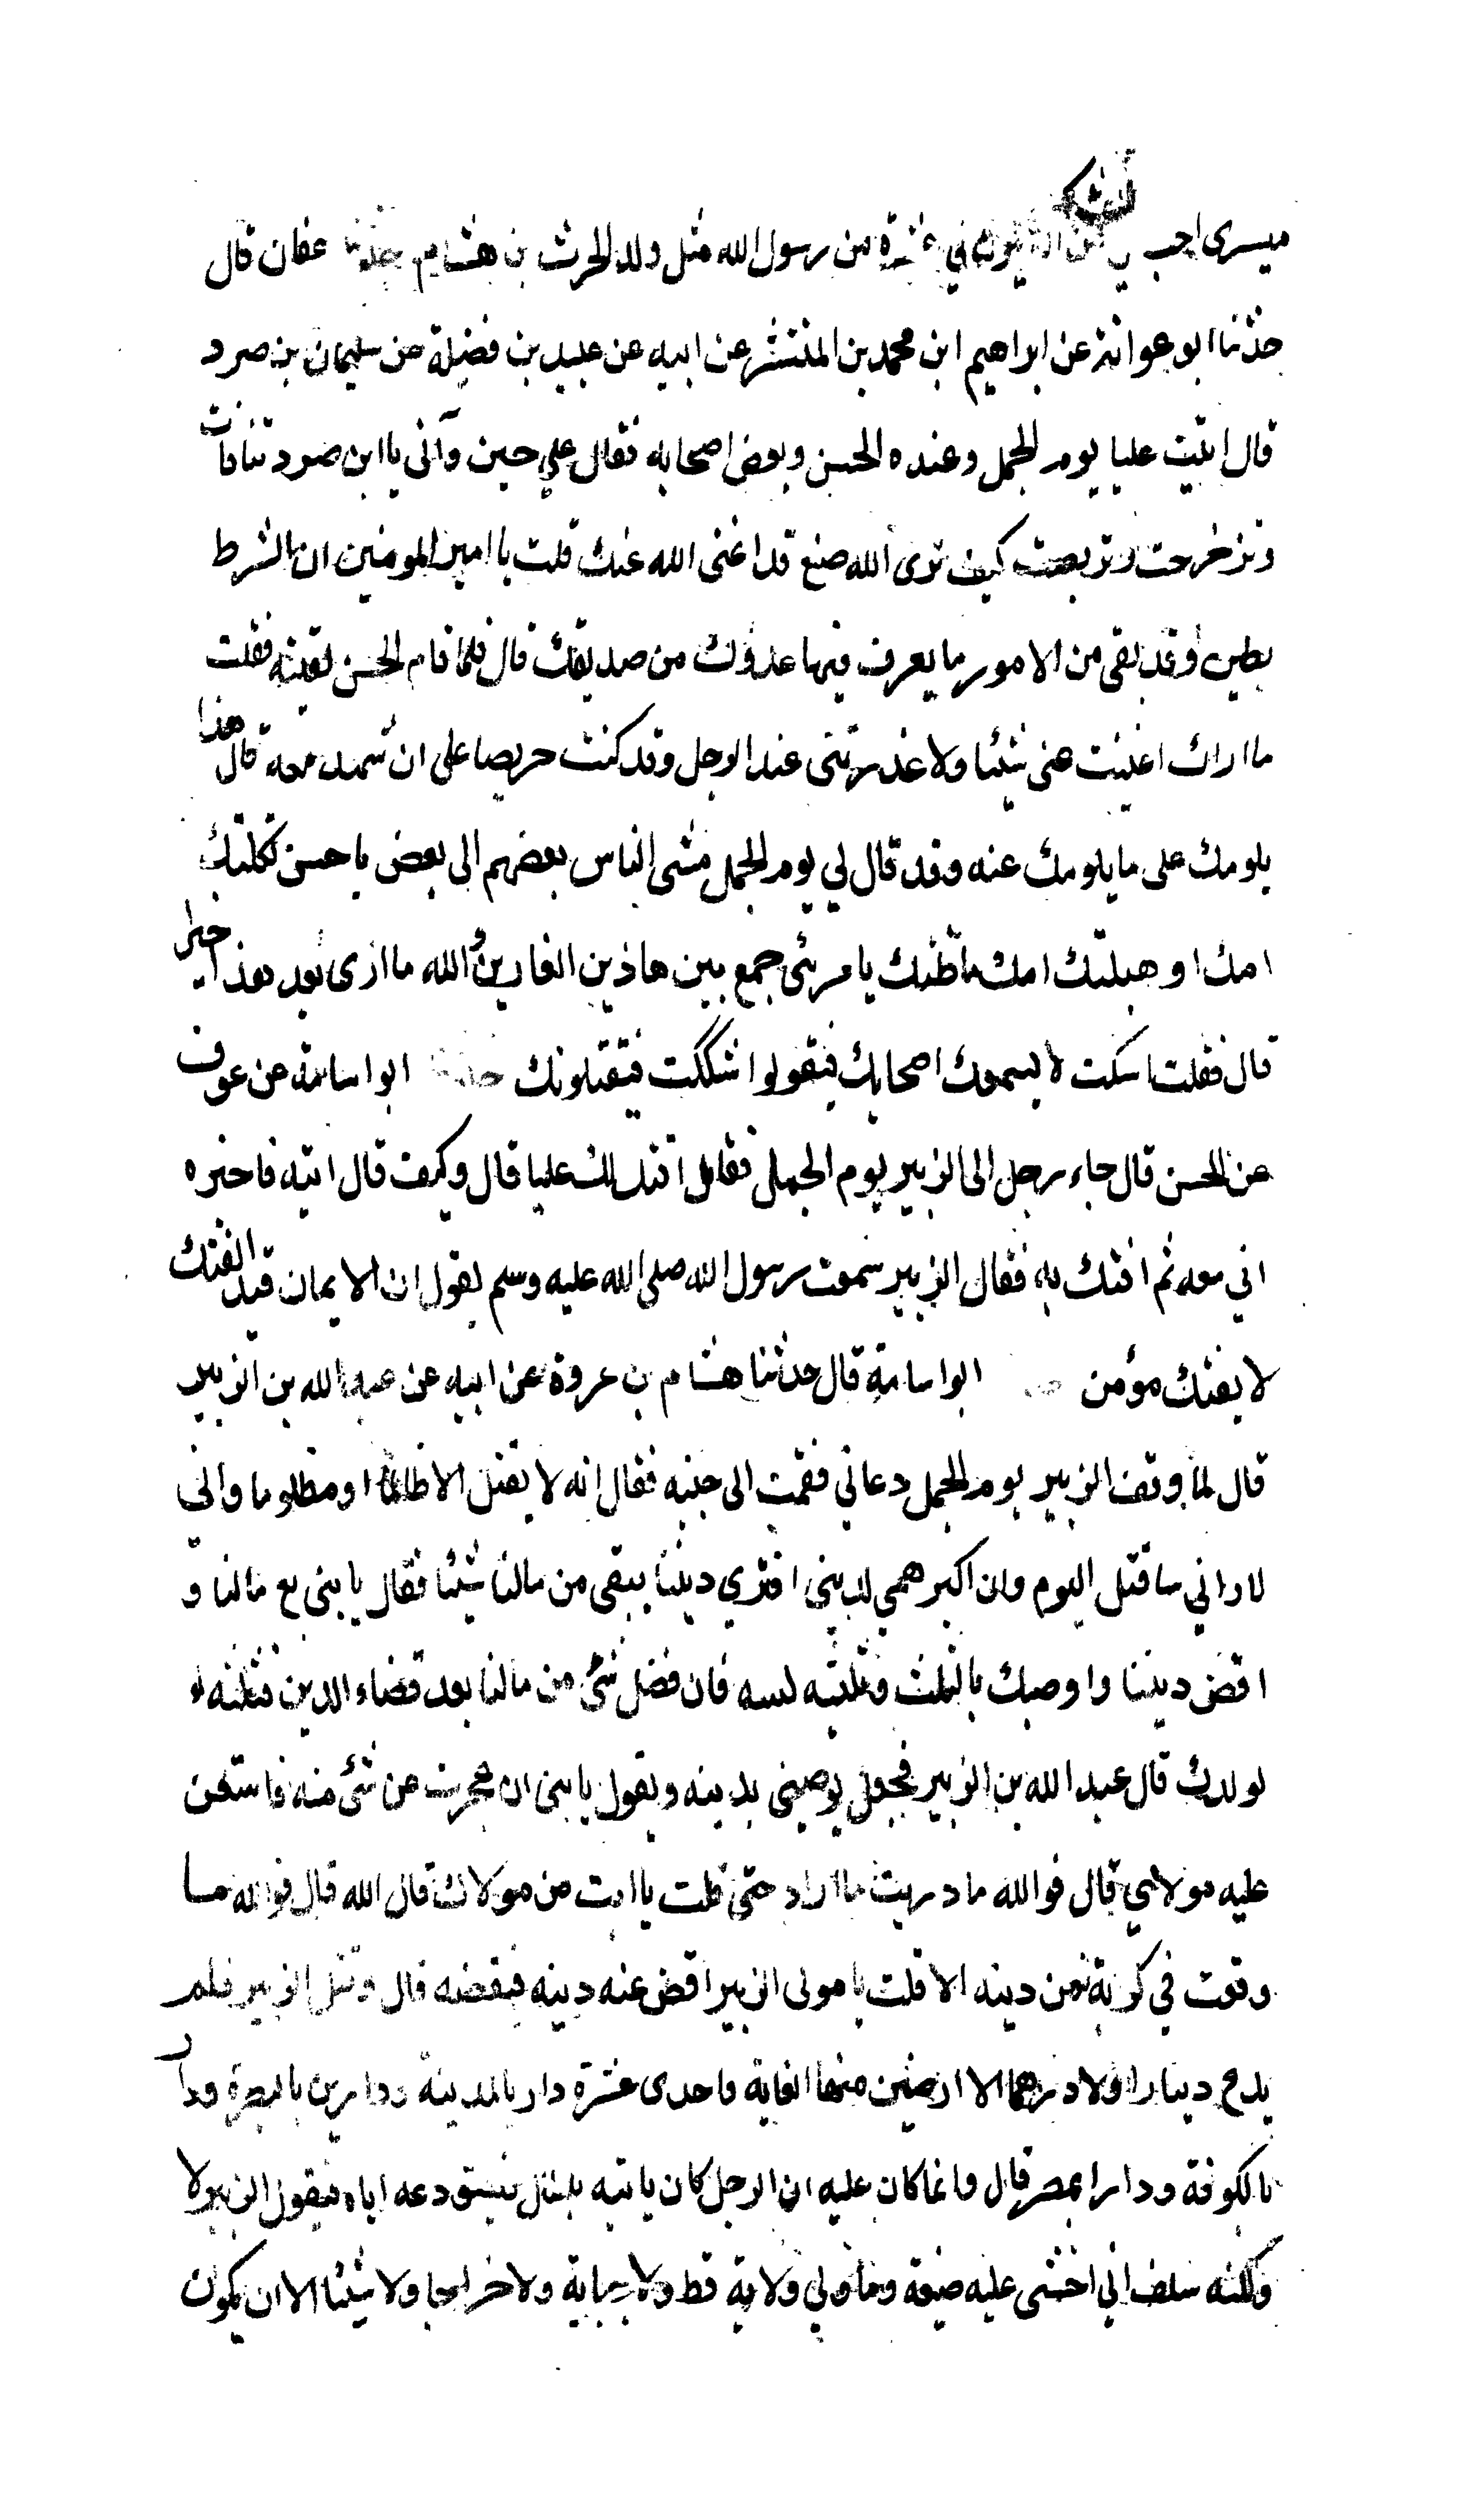 ميسرى احب من ان يكون لي عشرة من رسول الله مثل ولد الحرث بن هشام حدثنا عفان قال
حدثنا ابو عوانة عن ابراهيم ابن محمد بن المنتشر عن ابيه عن عبيد بن فضيلة عن سليمان بن صرد
قال اتيت عليا يوم الجمل وعنده الحسن وبعض اصحابه فقال علي حين رآنى يا ابن صرد تنانات
وتزخرحت وتربصت كيف ترى الله صنع قد اغنى الله عنك قلت يا امير المومنين ان الشرط
بطين وقد بقى من الامور ما يعرف فيها عدوك من صديقك قال فلما قام الحسن لقيته فقلت
ما اراك اغنيت عنى شيئا ولا عذرتنى عند الرجل وقد كنت حريصا على ان تشهد معه قال هذا
يلومك على ما يلومك عنه وقد قال لي يوم الجمل مشى الناس بعضهم الى بعض يا حسن ثكلتك
امك او هبلتك امك ما ظنك يا مرئى جمع بين هاذين الغارين والله ما ارى بعد هذا خيرا
قال فقلت اسكت لا يسمعك اصحابك فيقولوا شككت فيقتلونك حدثنا ابو اسامة عن عوف
عن الحسن قال جاء رجل الى الزبير يوم الجمل فقال اقتل لك عليا قال وكيف قال اتيه فاخبره
اني معه ثم افتك به فقال الزبير سمعت رسول الله صلى الله عليه وسلم يقول ان الايمان قيد الفتك
لا يفتك مؤمن ابو اسامة قال حدثنا هشام بن عروة عن ابيه عن عبد الله بن الزبير
قال لما وقف الزبير يوم الجمل دعاني فقمت الى جنبه فقال انه لا يقتل الا ظالما او مظلوما واني
لاراني ساقتل اليوم وان اكبر همي لديني افترى ديننا يبقى من مالنا شيئا فقال يا بنى بع مالنا و
اقض ديننا واوصيك بالثلث وثلثيه لبنيه فان فضل شئ من مالنا بعد قضاء الدين فثلثه
لولدك قال عبد الله بن الزبير فجعل يوصينى بدينه ويقول يا بنى ان عجزت عن شئ منه فاستعن
عليه مولاي قال فوالله ما دريت ما اراد حتى قلت يا ابت من مولاك قال الله قال فوالله مسا
وقعت في كربة من دينه الا قلت يا مولى الزبير اقض عنه دينه فيقضه قال وقتل الزبير فلم
يدع دينارا ولا درهما الا ارضين منها الغابة واحدى عشرة دار بالمدينة ودارين بالبصرة ودار
بالكوفة ودارا بمصر قال وانما كان عليه ان الرجل كان ياتيه بالمال فيستودعه اياه فيقول الزبير لا
ولكنه سلف اني اخشى عليه ضيعة وما ولي ولاية قط ولا جباية ولا خراجا ولا شيئا الا ان يكون